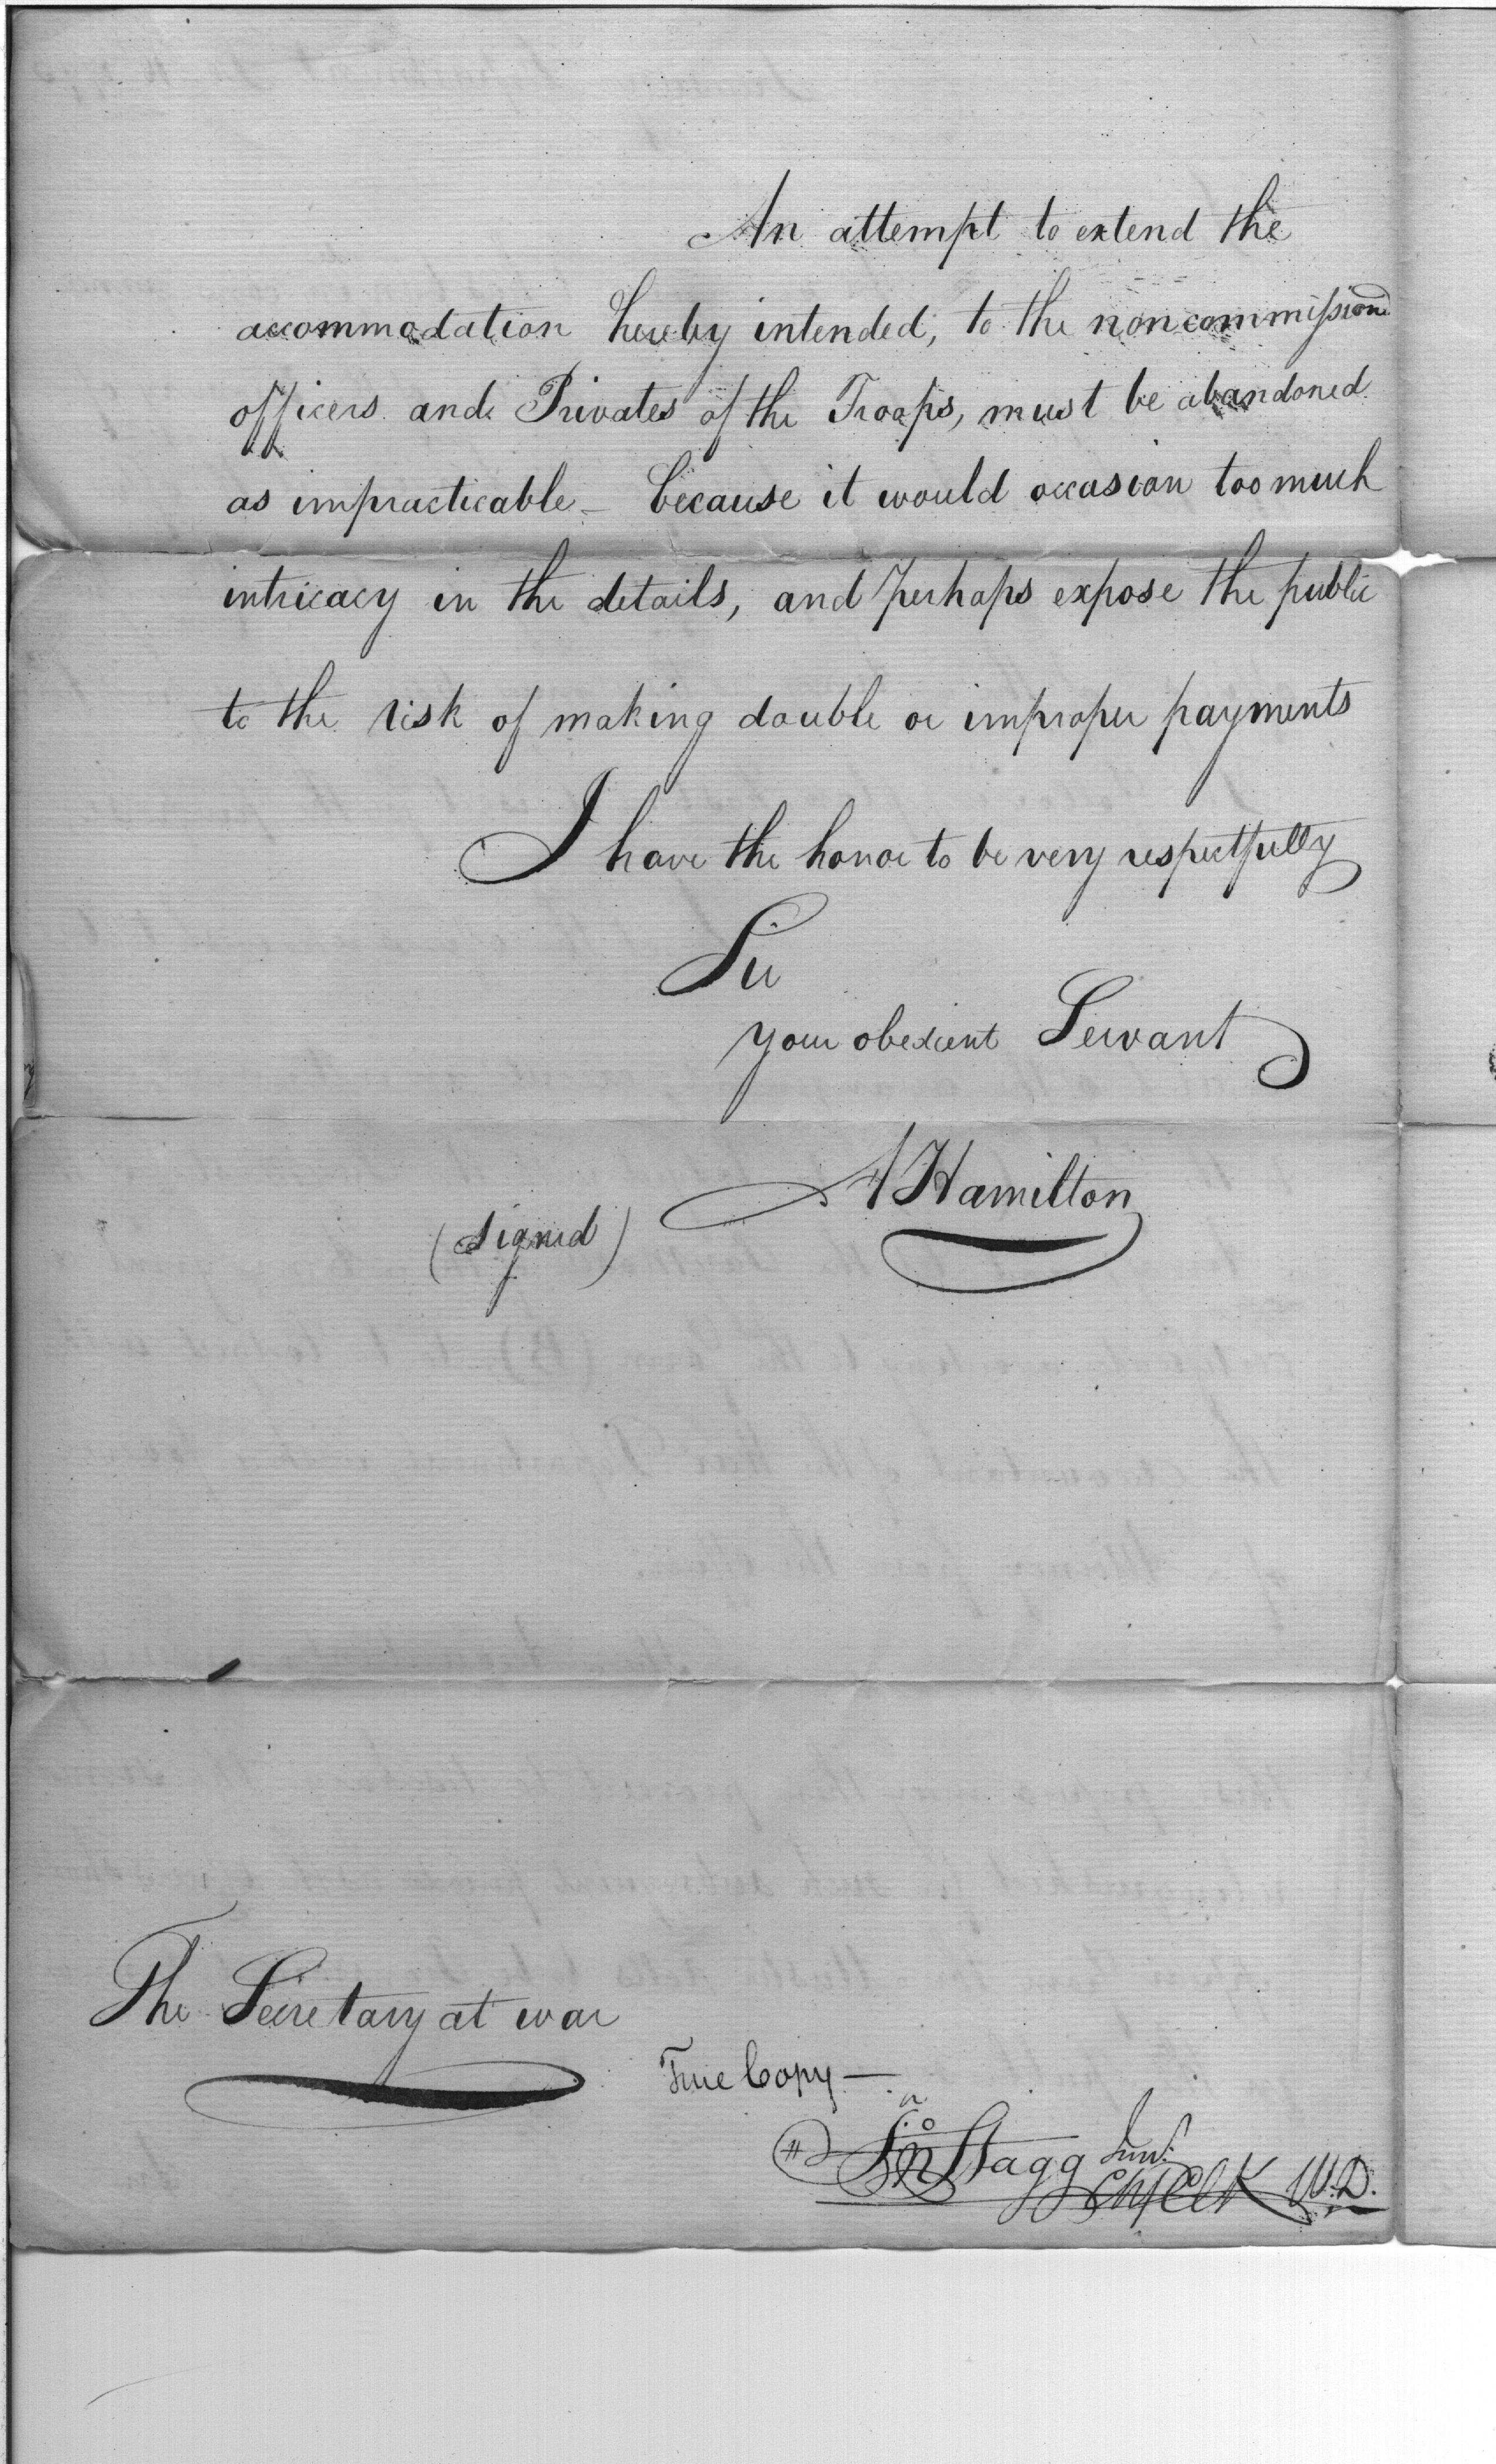 An attempt to extend the
accommodation hereby intended, to the noncommissiond
officers and Privates of the Troops, must be abandoned
as impracticable – because it would occasion too much
intricacy in the details, and perhaps expose the public
to the risk of making double or improper payments
I have the honor to be very respectfully
Sir
your obedient Servant
A Hamilton
(signed)
The Secretary at war
True Copy —
Jno Stagg Junr.
Chf Clk W.D.